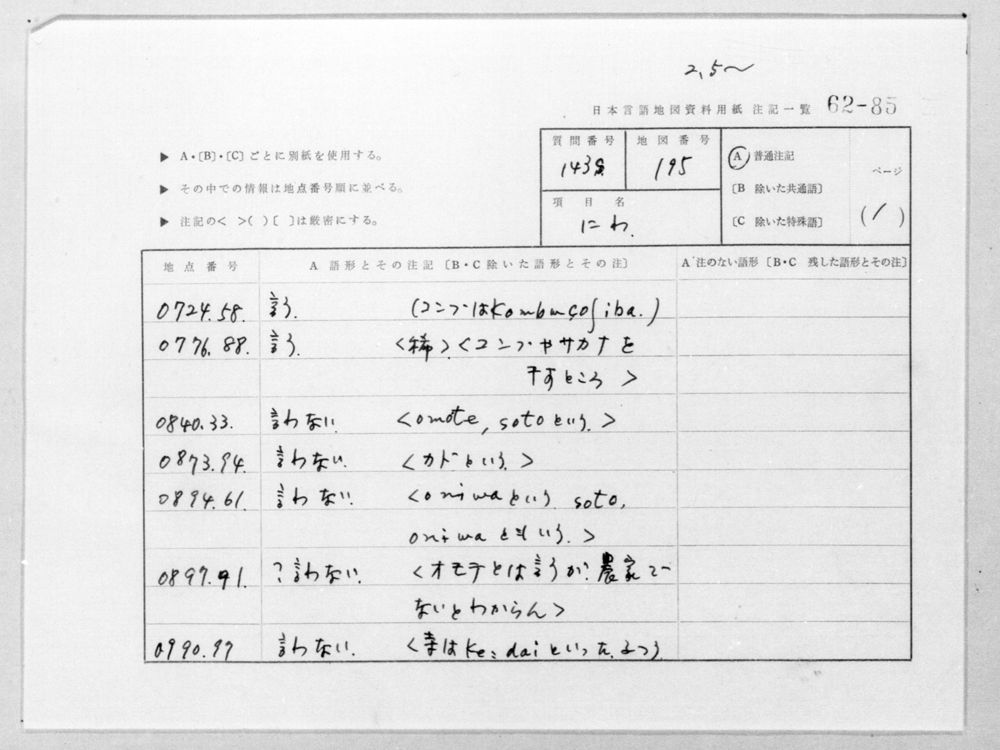 2,5〜
日本言語地図資料用紙 注記一覧 62-85
▶ A・〔B〕・〔C〕ごとに別紙を使用する。
▶ その中での情報は地点番号順に並べる。
▶ 注記の< >( )〔 〕は厳密にする。
質問番号 地図番号
143 195
項目名
にわ.
A 普通注記
〔B 除いた共通語〕
〔C 除いた特殊語〕
ページ
(1)
地点番号 A 語形とその注記〔B・C除いた語形とその注〕 A 注のない語形〔B・C 残した語形とその注〕
0724.58. 言う. (コンブはkombuçoʃiba.)
0776.88. 言う. <稀><コンブやサカナを
干すところ>
0840.33. 言わない. <omote, sotoという.>
0873.94. 言わない. <カドという.>
0894.61. 言わない. <oniwaという soto,
oniwaともいう.>
0897.91. ?言わない. <オモテとは言うが.農家で
ないとわからん>
0990.97 言わない. <寺はke:daiといった.ふつう